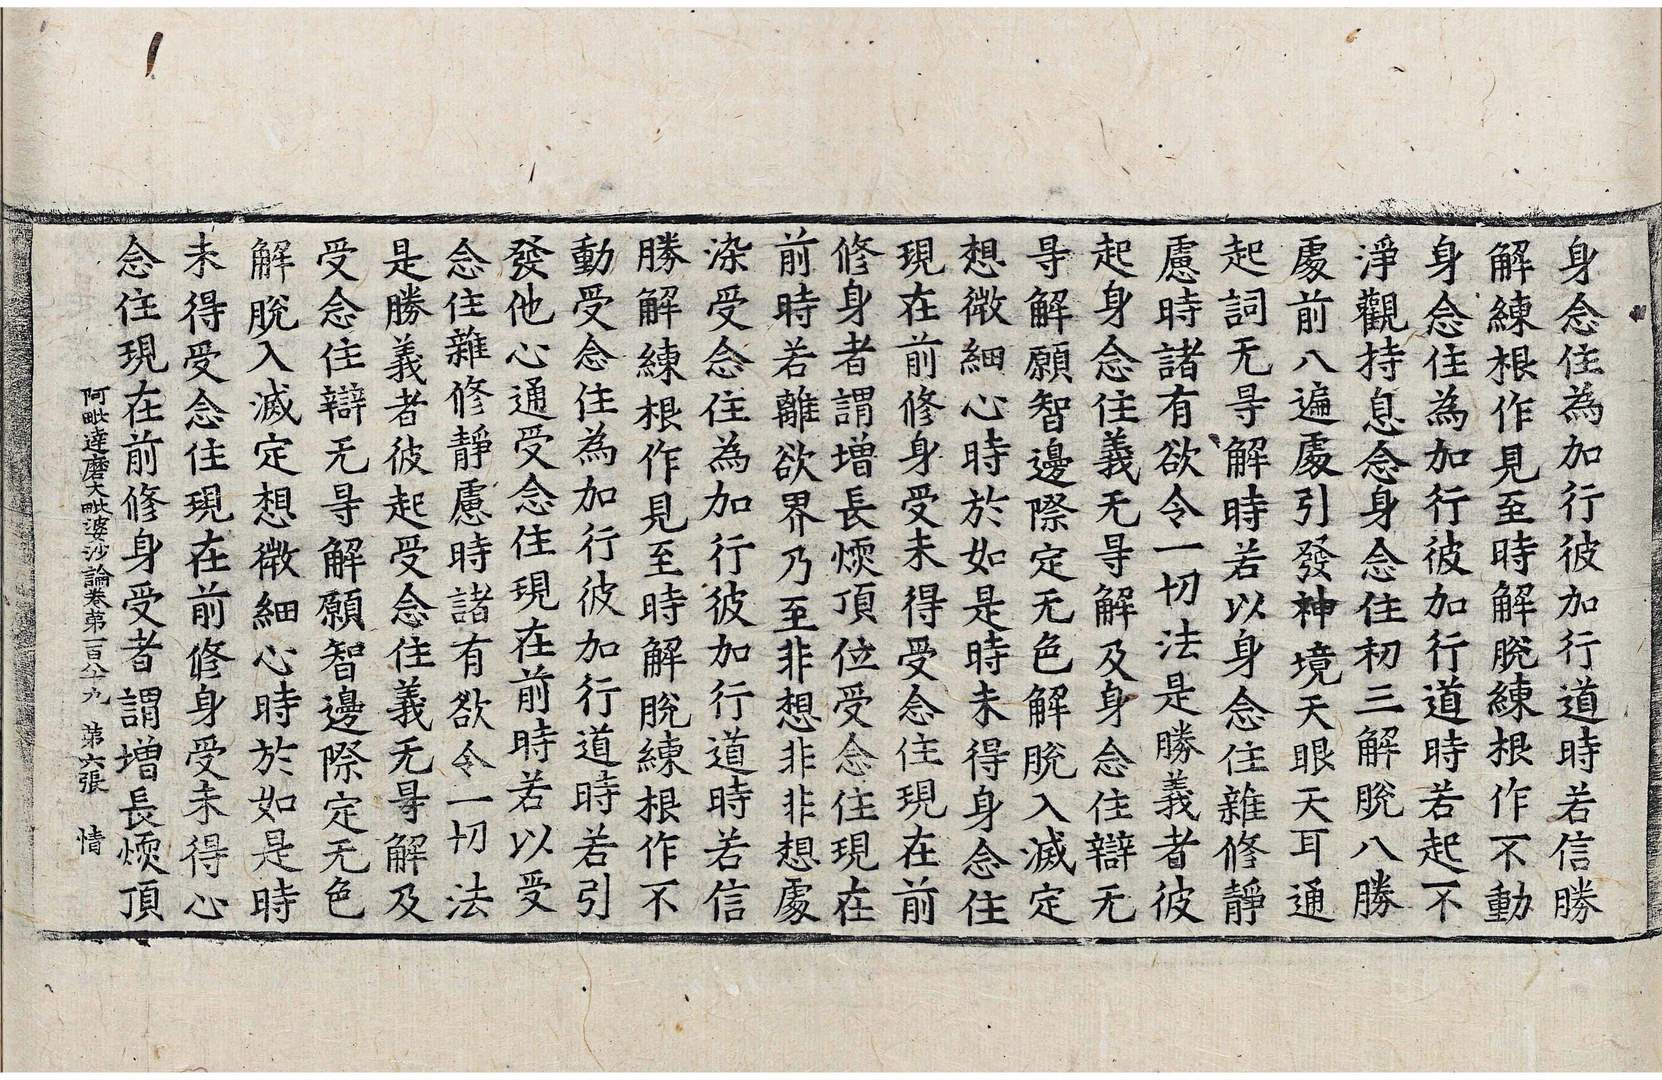 身念住為加行彼加行道時若信勝
解練根作見至時解脫練根作不動
身念住為加行彼加行道時若起不
淨觀持息念身念住初三解脫八勝
處前八遍處引發神境天眼天耳通
起詞无㝵解時若以身念住雜修靜
慮時諸有欲令一切法是勝義者彼
起身念住義无㝵解及身念住辯无
㝵解願智邊際定无色解脫入滅定
想微細心時於如是時未得身念住
現在前修身受未得受念住現在前
修身者謂增長煗頂位受念住現在
前時若離欲界乃至非想非非想處
染受念住為加行彼加行道時若信
勝解練根作見至時解脫練根作不
動受念住為加行彼加行道時若引
發他心通受念住現在前時若以受
念住雜修靜慮時諸有欲令一切法
是勝義者彼起受念住義无㝵解及
受念住辯无㝵解願智邊際定无色
解脫入滅定想微細心時於如是時
未得受念住現在前修身受未得心
念住現在前修身受者謂增長煗頂
阿毗達磨大毗婆沙論卷第一百八十九 第六張 情